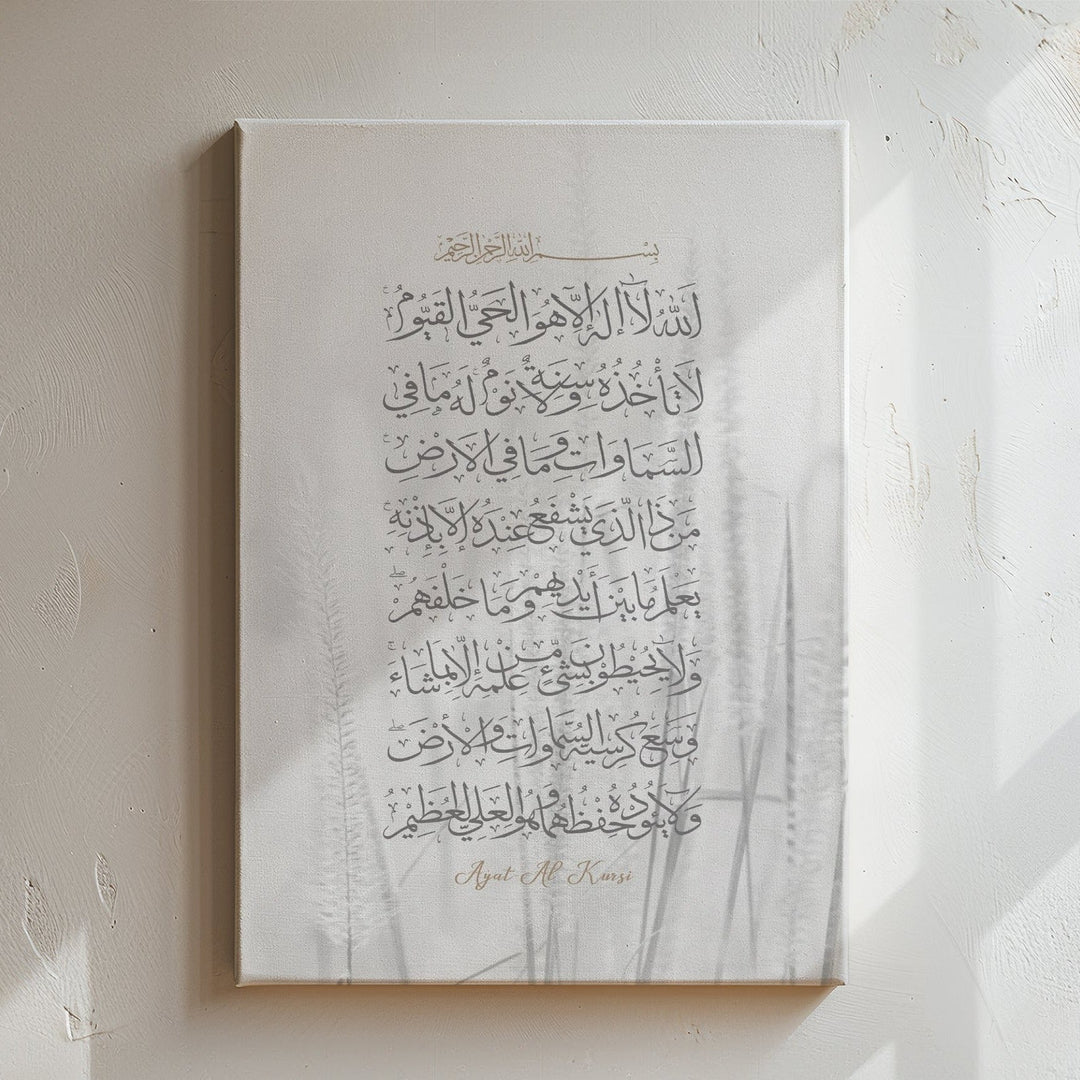 بِسْمِ اللّٰهِ الرَّحْمٰنِ الرَّحِيْمِ
اَللّٰهُ لَاۤ اِلٰهَ اِلَّا هُوَ الْحَيُّ الْقَيُّوْمُ
لَا تَأْخُذُهُ سِنَةٌ وَلَا نَوْمٌ لَهُ مَا فِي
السَّمَاوَاتِ وَمَا فِي الْاَرْضِ
مَنْ ذَا الَّذِيْ يَشْفَعُ عِنْدَهُ اِلَّا بِاِذْنِهِ
يَعْلَمُ مَا بَيْنَ أَيْدِيْهِمْ وَمَا خَلْفَهُمْ
وَلَا يُحِيْطُوْنَ بِشَيْءٍ مِّنْ عِلْمِهِ اِلَّا بِمَا شَاءَ
وَسِعَ كُرْسِيُّهُ السَّمَاوَاتِ وَالْأَرْضَ
وَلَا يَئُوْدُهُ حِفْظُهُمَا وَهُوَ الْعَلِيُّ الْعَظِيْمُ
Ayat Al Kursi